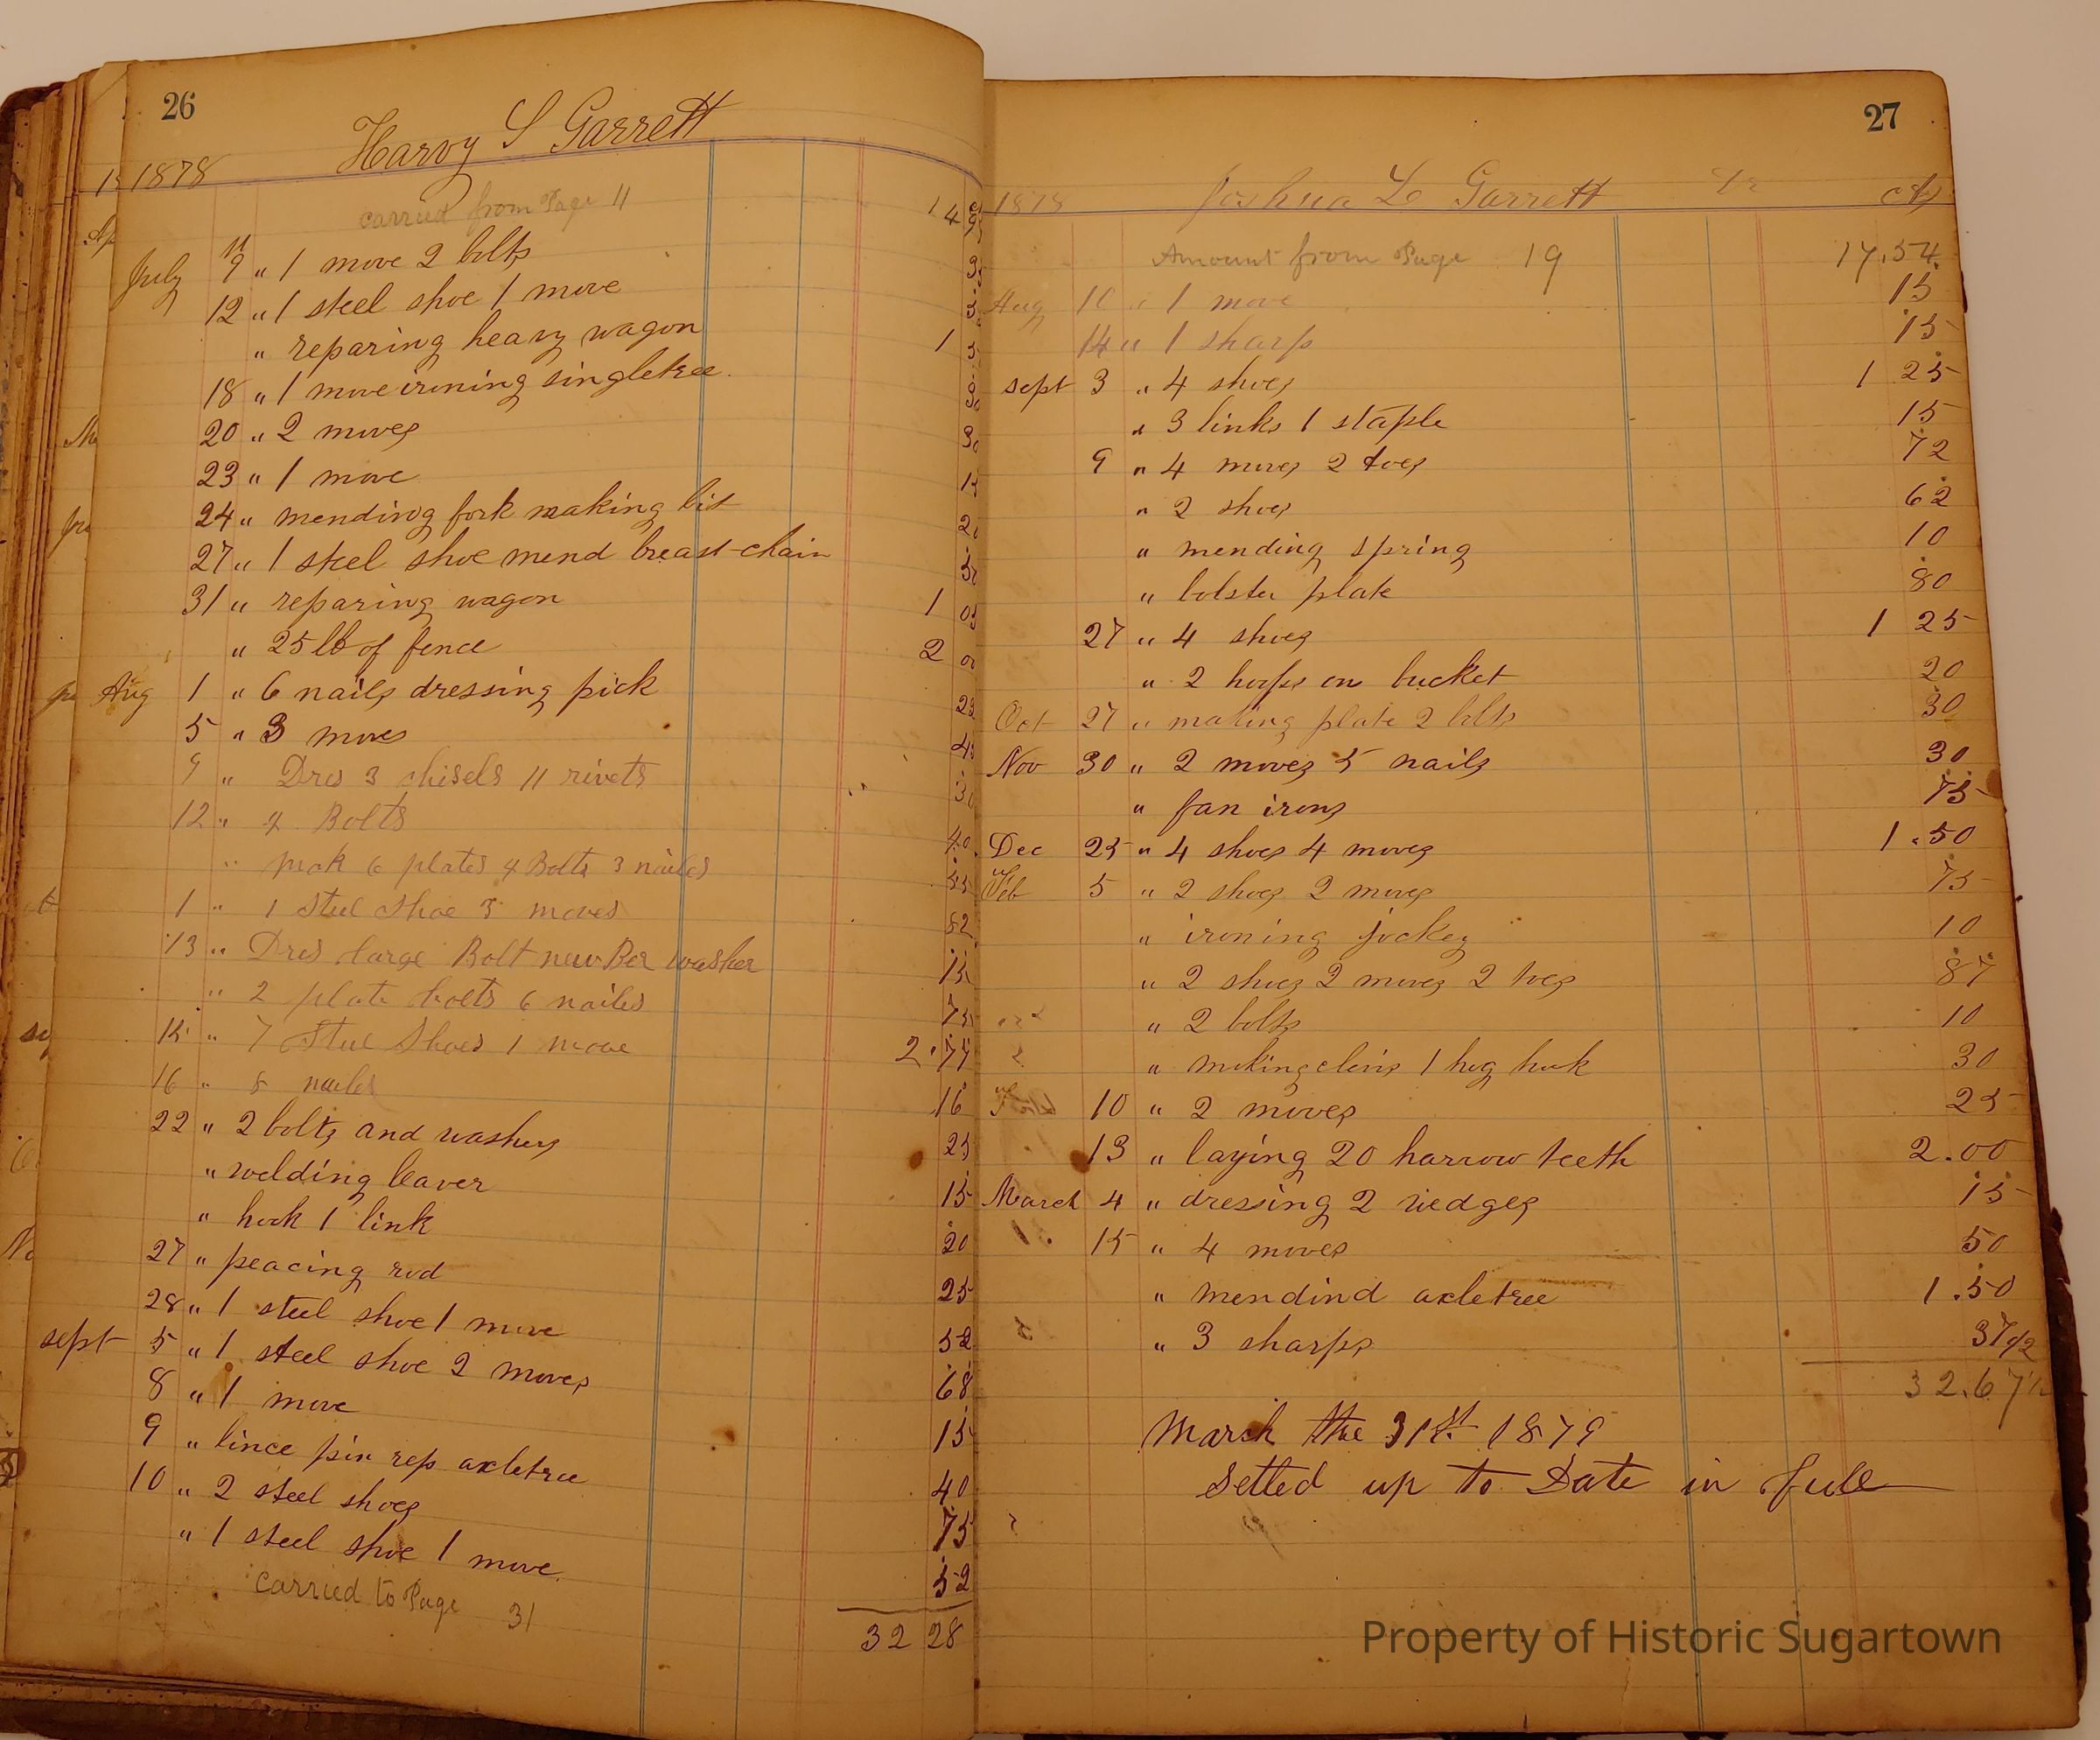 26
Harvy S Garrett
1878
carried from Page 11 14
July 9 " 1 move 2 bolts
12 " 1 steel shoe 1 move
" reparing heavy wagon 1
18 " 1 move ironing singletree
20 " 2 moves 30
23 " 1 move 15
24 " mending fork making bit
27 " 1 steel shoe mend breast-chain
31 " reparing wagon 1 05
" 25 lb of fence 2 00
Aug 1 " 6 nails dressing pick
5 " 3 moves
9 " Dres 3 chisels 11 rivets
12 " 4 Bolts 40
" mak 6 plates 4 Bolts 3 nailes 55
1 " 1 Steel Shoe 3 moves 82
13 " Dres large Bolt new Bor washer 15
" 2 plate boets 6 nailes 75
15 " 7 Steel Shoes 1 move 2.77
16 " 8 nailes 16
22 " 2 bolts and washers 25
" welding leaver 15
" hook 1 link 20
27 " peacing rod 25
28 " 1 steel shoe 1 move 52
sept 5 " 1 steel shoe 2 moves 68
8 " 1 move 15
9 " lince pin rep axletree 40
10 " 2 steel shoes 75
" 1 steel shoe 1 move 52
carried to Page 31
32 28
27
1878 Joshua L Garrett Dr cts
Amount from Page 19 17.54
Aug 10 " 1 move 15
14 " 1 sharp 15
sept 3 " 4 shoes 1 25
" 3 links 1 staple 15
9 " 4 moves 2 toes 72
" 2 shoes 62
" mending spring 10
" bolster plate 80
27 " 4 shoes 1 25
" 2 hoops on bucket 20
Oct 27 " making plate 2 bolts 30
Nov 30 " 2 moves 5 nails 30
" fan irons 75
Dec 25 " 4 shoes 4 moves 1.50
Feb 5 " 2 shoes 2 moves 75
" ironing jockey 10
" 2 shoes 2 moves 2 toes 87
" 2 bolts 10
" making clevis 1 hog hook 30
10 " 2 moves 25
13 " laying 20 harrow teeth 2.00
March 4 " dressing 2 wedges 15
15 " 4 moves 50
" mendind axletree 1.50
" 3 sharps 37 1/2
32.67 1/2
March the 31st 1879
Setled up to Date in full
Property of Historic Sugartown